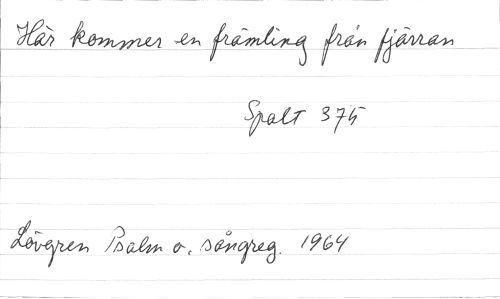 Här kommer en främling från fjärran
Spalt 375
Lövgren Psalm o. sångreg. 1964